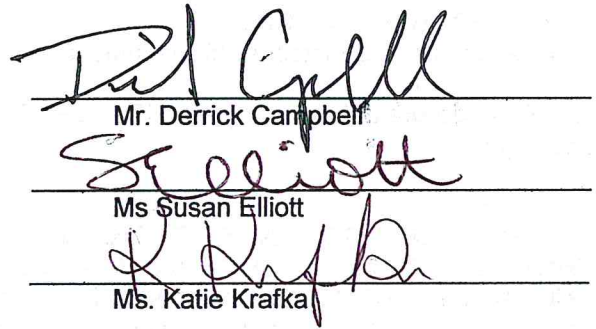 Mr. Derrick Campbell
S Elliott
Ms Susan Elliott
K Krafka
Ms. Katie Krafka